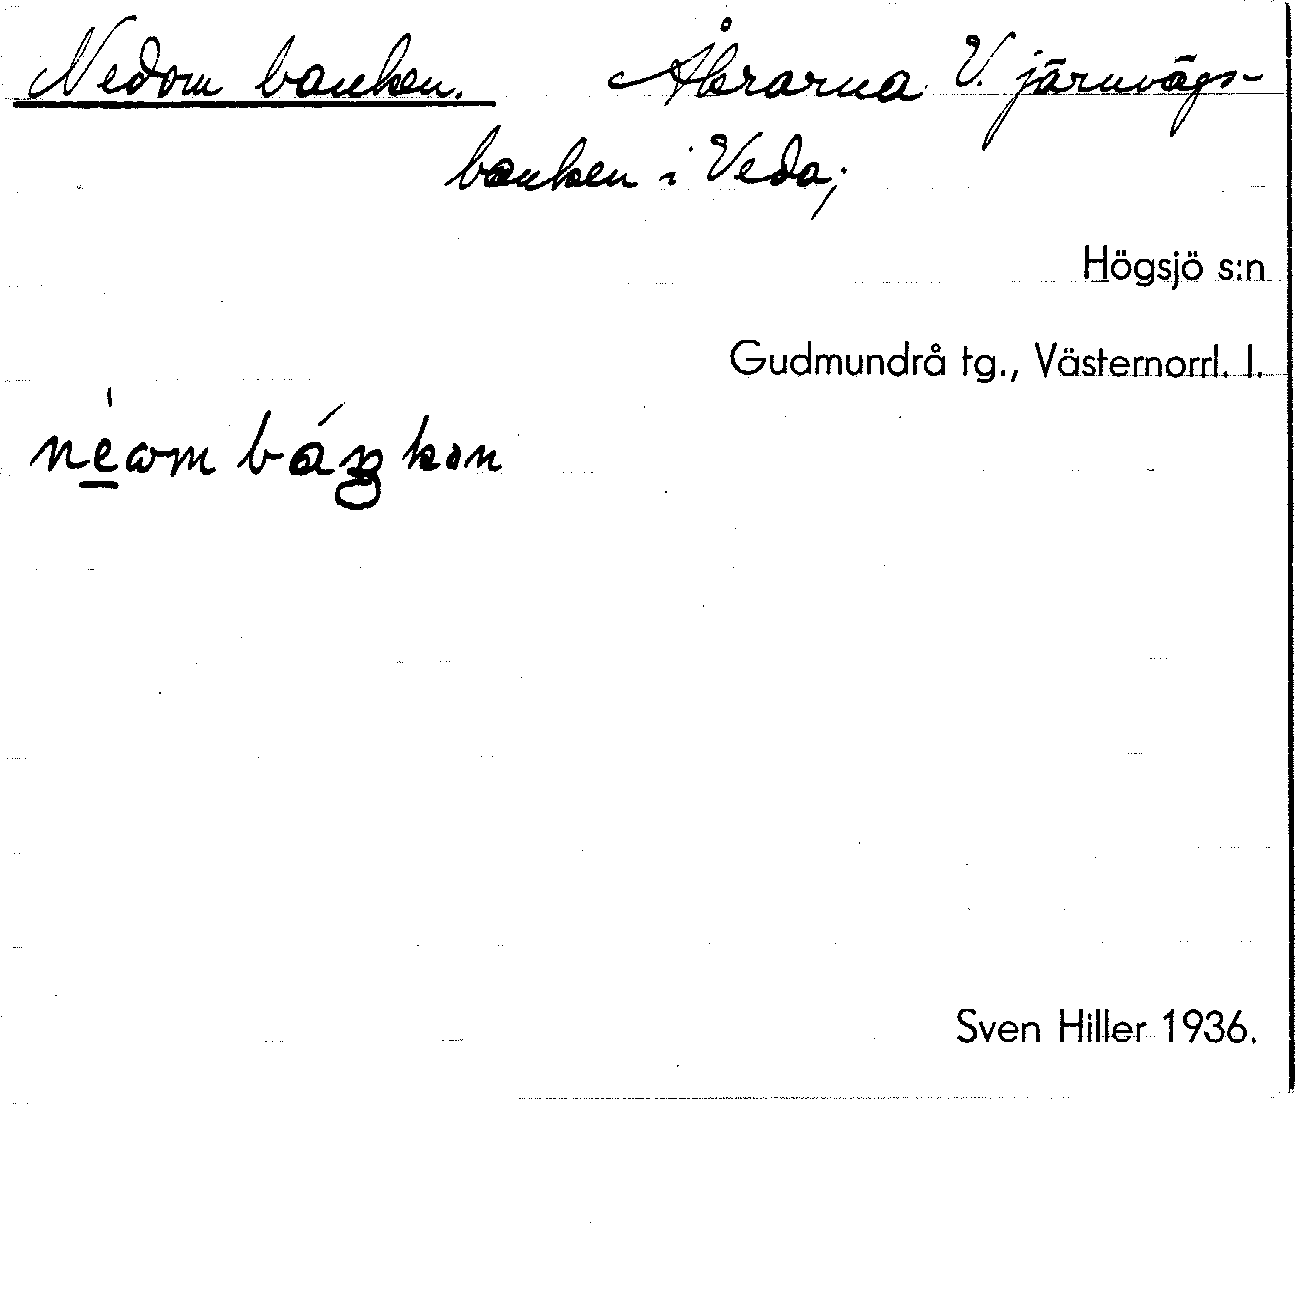 Nedom banken. Åkrarna V. järnvägs-
banken i Veda;
Högsjö s:n
Gudmundrå tg., Västernorrl. l.
néωm báŋkən
Sven Hiller 1936.